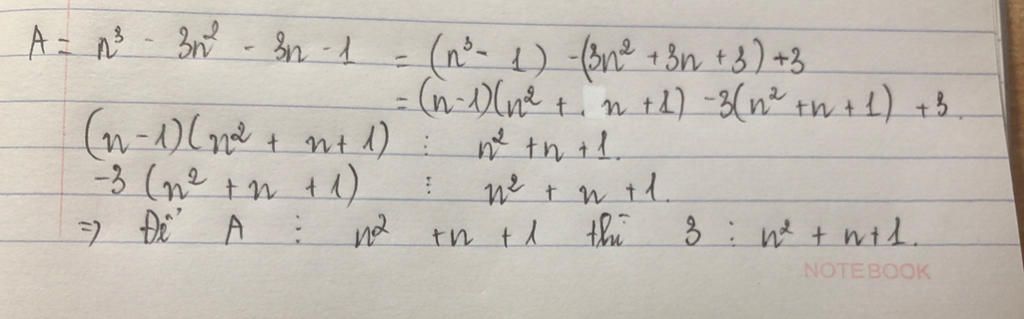 A = n³ - 3n² - 3n - 1 = (n³ - 1) -(3n² + 3n + 3) + 3
= (n-1)(n² + n + 1) - 3(n² + n + 1) + 3.
(n-1)(n² + n + 1) ⋮ n² + n + 1.
-3 (n² + n + 1) ⋮ n² + n + 1.
=> Để A ⋮ n² + n + 1 thì 3 ⋮ n² + n + 1.
NOTEBOOK